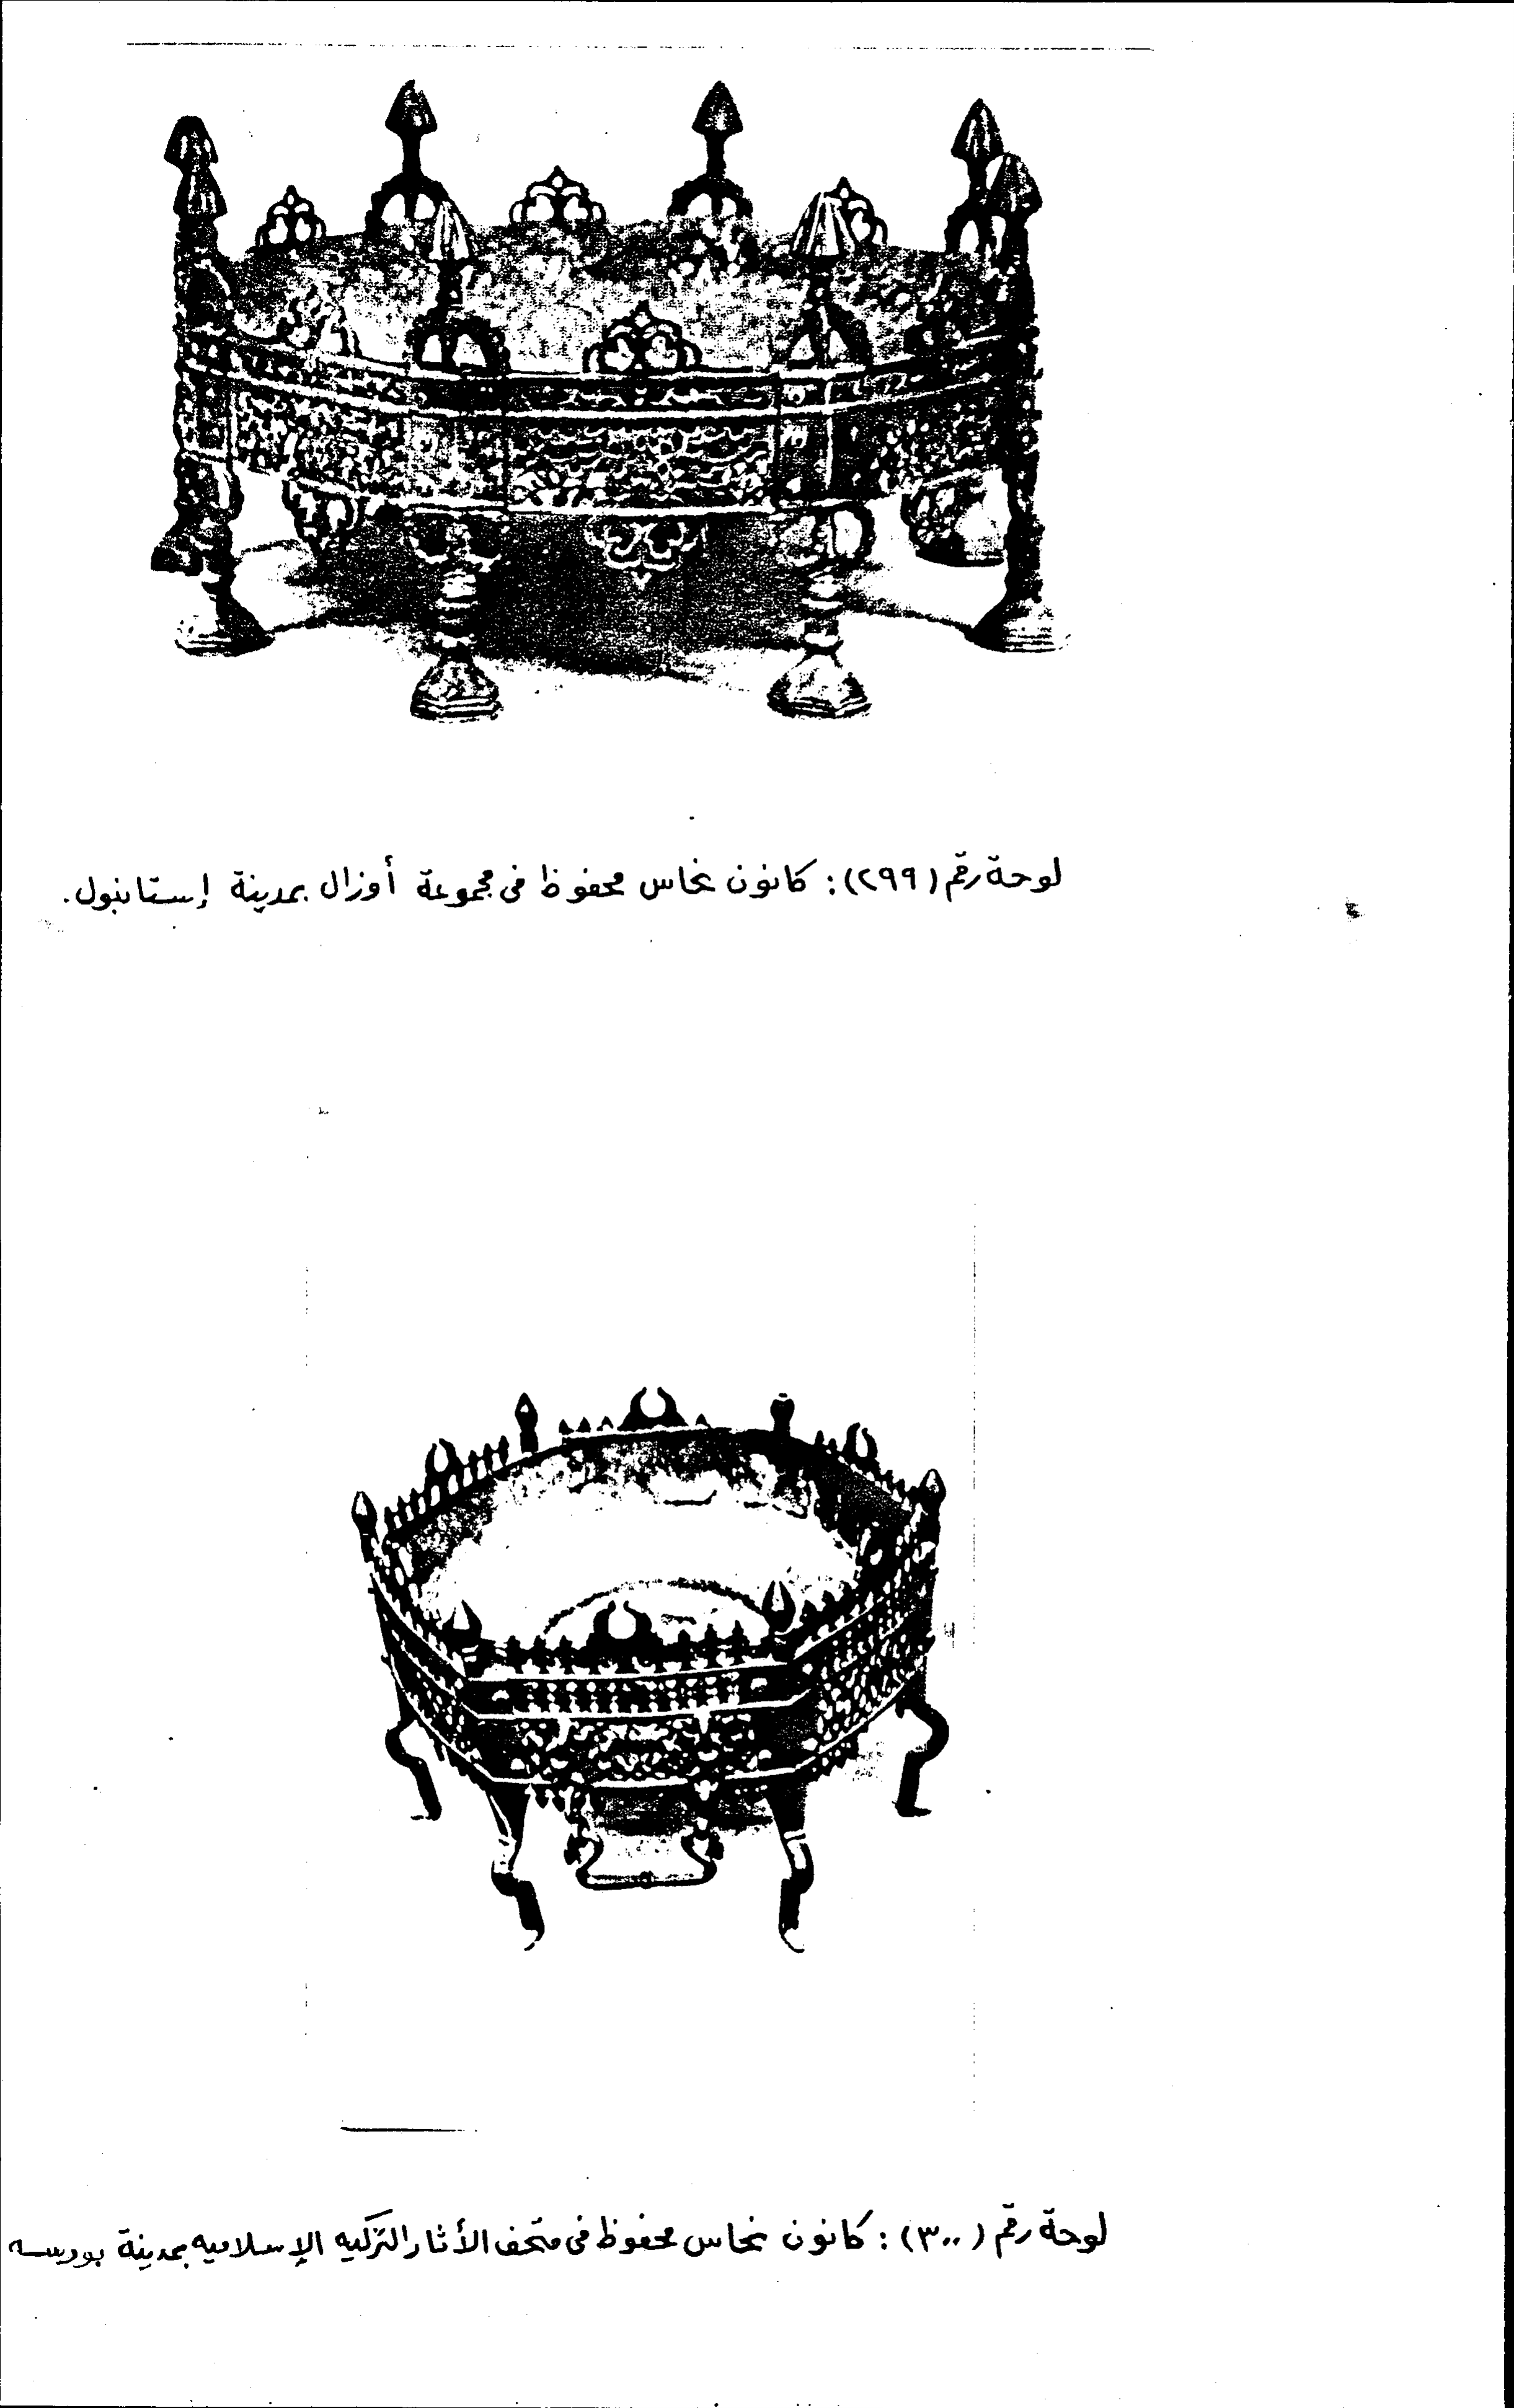 لوحة رقم (٢٩٩): كانون نحاس محفوظ فى مجموعة أوزال بمدينة إستانبول.
لوحة رقم (٣٠٠): كانون نحاس محفوظ فى متحف الأثار التركيه الإسلاميه بمدينة بورسه